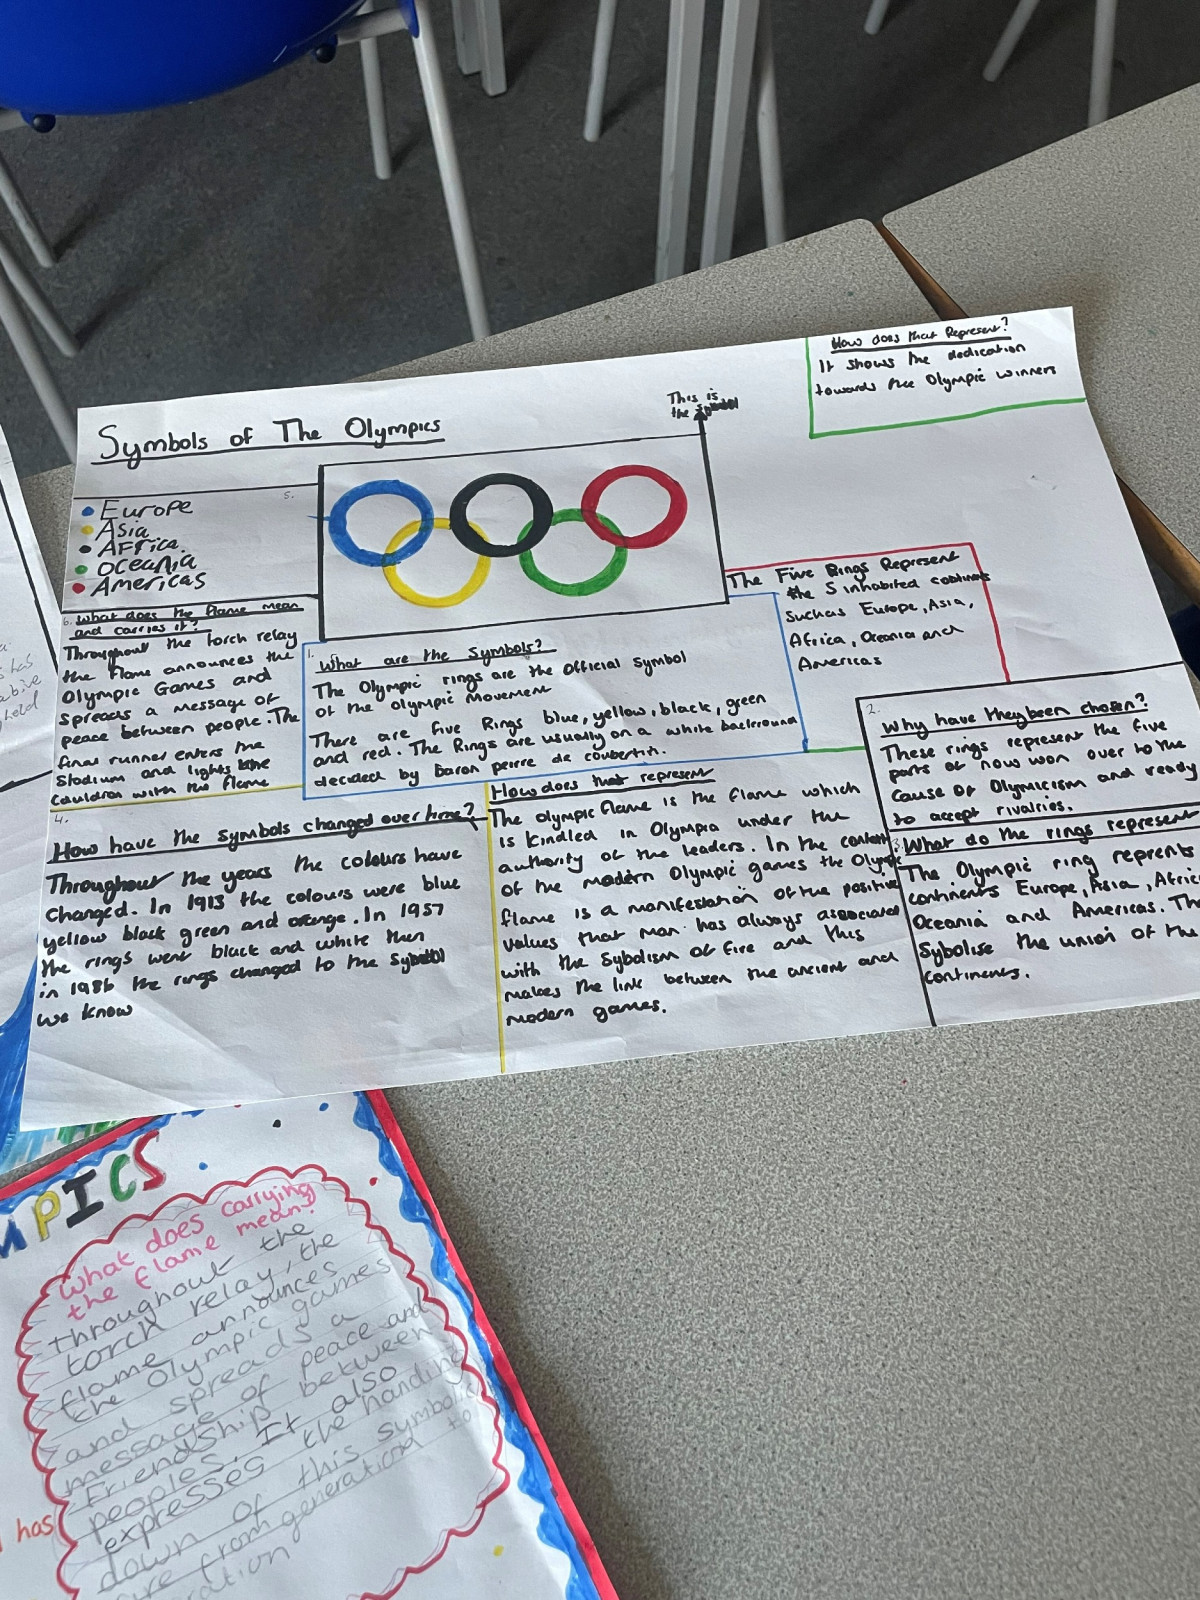 Symbols of The Olympics
This is
the
How does that Represent?
It shows the dedication
towards the Olympic winners
5.
Europe
Asia
Africa
Oceania
Americas
6. What does the flame mean
and carries it?
Throughout the torch relay
the flame announces the
Olympic Games and
spreads a message of
peace between people. The
final runner enters the
Stadium and lights the
cauldron with the flame
1.
What are the symbols?
The Olympic rings are the official symbol
of the olympic movement
There are five Rings blue, yellow, black, green
and red. The Rings are usually on a white
decided by Baron peirre de coubertin.
The Five Rings Represent
the 5 inhabited
suchas Europe, Asia,
Africa, Oceania and
Americas
2.
Why have they been chosen?
These rings represent the five
parts of now won over to the
cause of Olymicism and ready
to accept rivalries.
3. What do the rings represent
The Olympic ring reprents
continents Europe, Asia, Africa
Oceania and Americas. The
Sybolise the union of the
continents.
4.
How have the symbols changed over time?
Throughout the years the colours have
changed. In 1913 the colours were blue
yellow black green and orange. In 1957
the rings went black and white then
in 1986 the rings changed to the symbol
we know
How does that represent
The olympic flame is the flame which
is kindled in Olympia under the
authority of the leaders. In the context
of the modern Olympic games the Olympic
flame is a manifestation of the positive
values that man has always associated
with the Sybolism of fire and this
makes the link between the ancient and
modern games.
held
MPICS
What does carrying
the flame mean?
throughout the
torch relay, the
flame announces
the Olympic games
and spreads a
message of peace and
Friendship between
peoples. It also
expresses the handing
down of this symbolic
fire from generation to
has